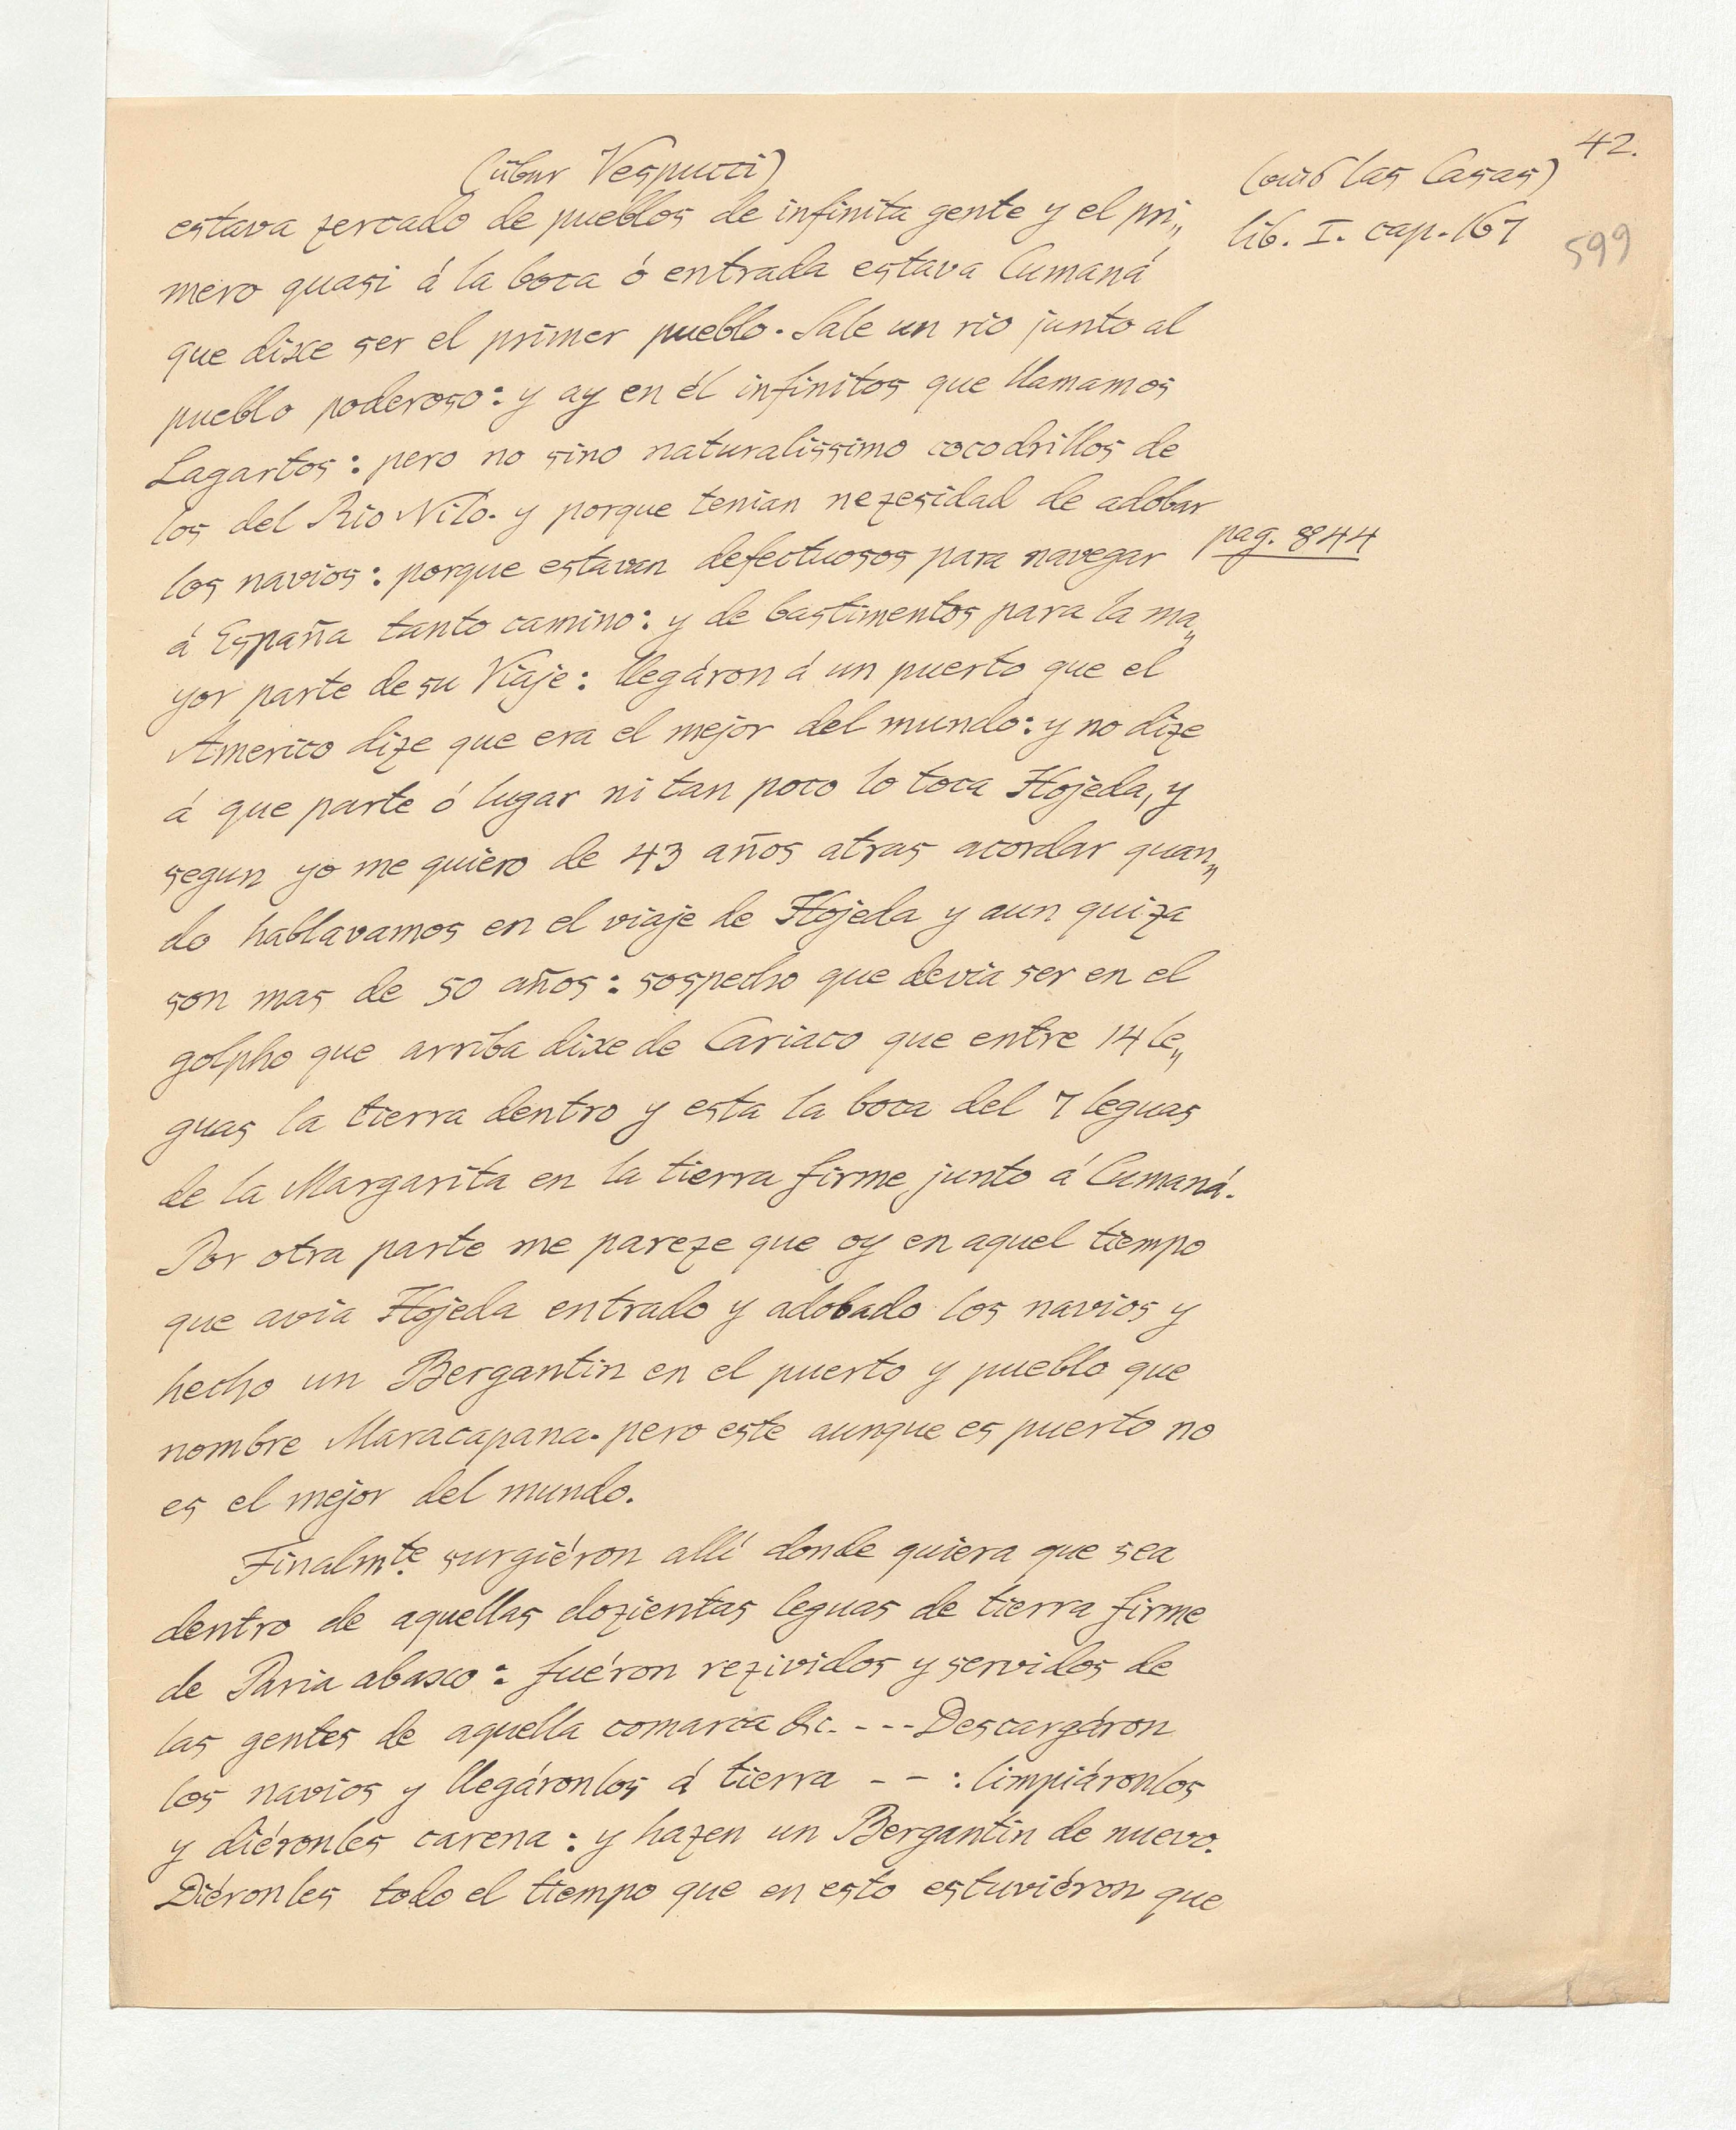 42.
(über Vespucci)
(aus las Casas)
lib. I. cap. 167
599
estava zercado de pueblos de infinita gente y el pri„
mero quasi á la boca ó entrada estava Cumaná
que dixe ser el primer pueblo. Sale un rio junto al
pueblo poderoso: y ay en él infinitos que llamamos
Lagartos: pero no sino naturalissimo cocodrillos de
los del Rio Nilo. y porque tenian nezesidad de adobar
los navios: porque estavan defectuosos para navegar
pag. 844
á España tanto camino: y de bastimentos para la ma„
yor parte de su Viaje: llegáron á un puerto que el
Americo dize que era el mejor del mundo: y no dize
á que parte ó lugar ni tan poco lo toca Hojeda, y
segun yo me quiero de 43 años atras acordar quan„
do hablavamos en el viaje de Hojeda y aun quiza
son mas de 50 años: sospecho que devia ser en el
golpho que arriba dixe de Cariaco que entre 14 le„
guas la tierra dentro y esta la boca del 7 leguas
de la Margarita en la tierra firme junto á Cumaná.
Por otra parte me pareze que oy en aquel tiempo
que avia Hojeda entrado y adobado los navios y
hecho un Bergantin en el puerto y pueblo que
nombre Maracapana. pero este aunque es puerto no
es el mejor del mundo.
Finalmte. surgiéron allí donde quiera que sea
dentro de aquellas dozientas leguas de tierra firme
de Paria abaxo: fuéron rezividos y servidos de
las gentes de aquella comarca &c. - - - Descargáron
los navios y llegáronlos á tierra - - : limpiáronlos
y diéronles carena: y hazen un Bergantin de nuevo.
Diéronles todo el tiempo que en esto estuviéron que